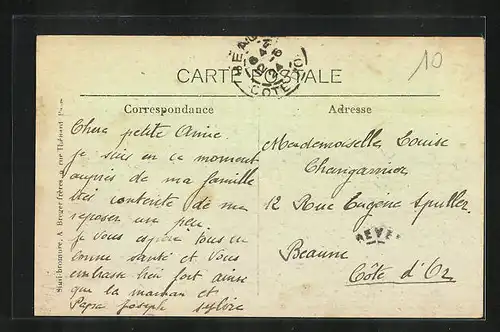 10
CARTE POSTALE
Correspondance
Adresse
Chere petite Amie.
je suis en ce moment
auprès de ma famille
très contente de me
reposer un peu.
je vous espère tous en
bonne santé et vous
embrasse bien fort ainsi
que la maman et
Papa joseph
Mademoiselle Louise
Changarnier
12 Rue Eugene Spuller
Beaune
Côte d'Or
COTE D'OR
Simili-bromure, A. Breger frères, 9, rue Thénard